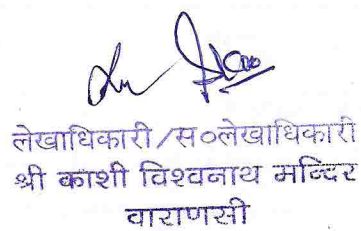 लेखाधिकारी/स०लेखाधिकारी
श्री काशी विश्वनाथ मन्दिर
वाराणसी